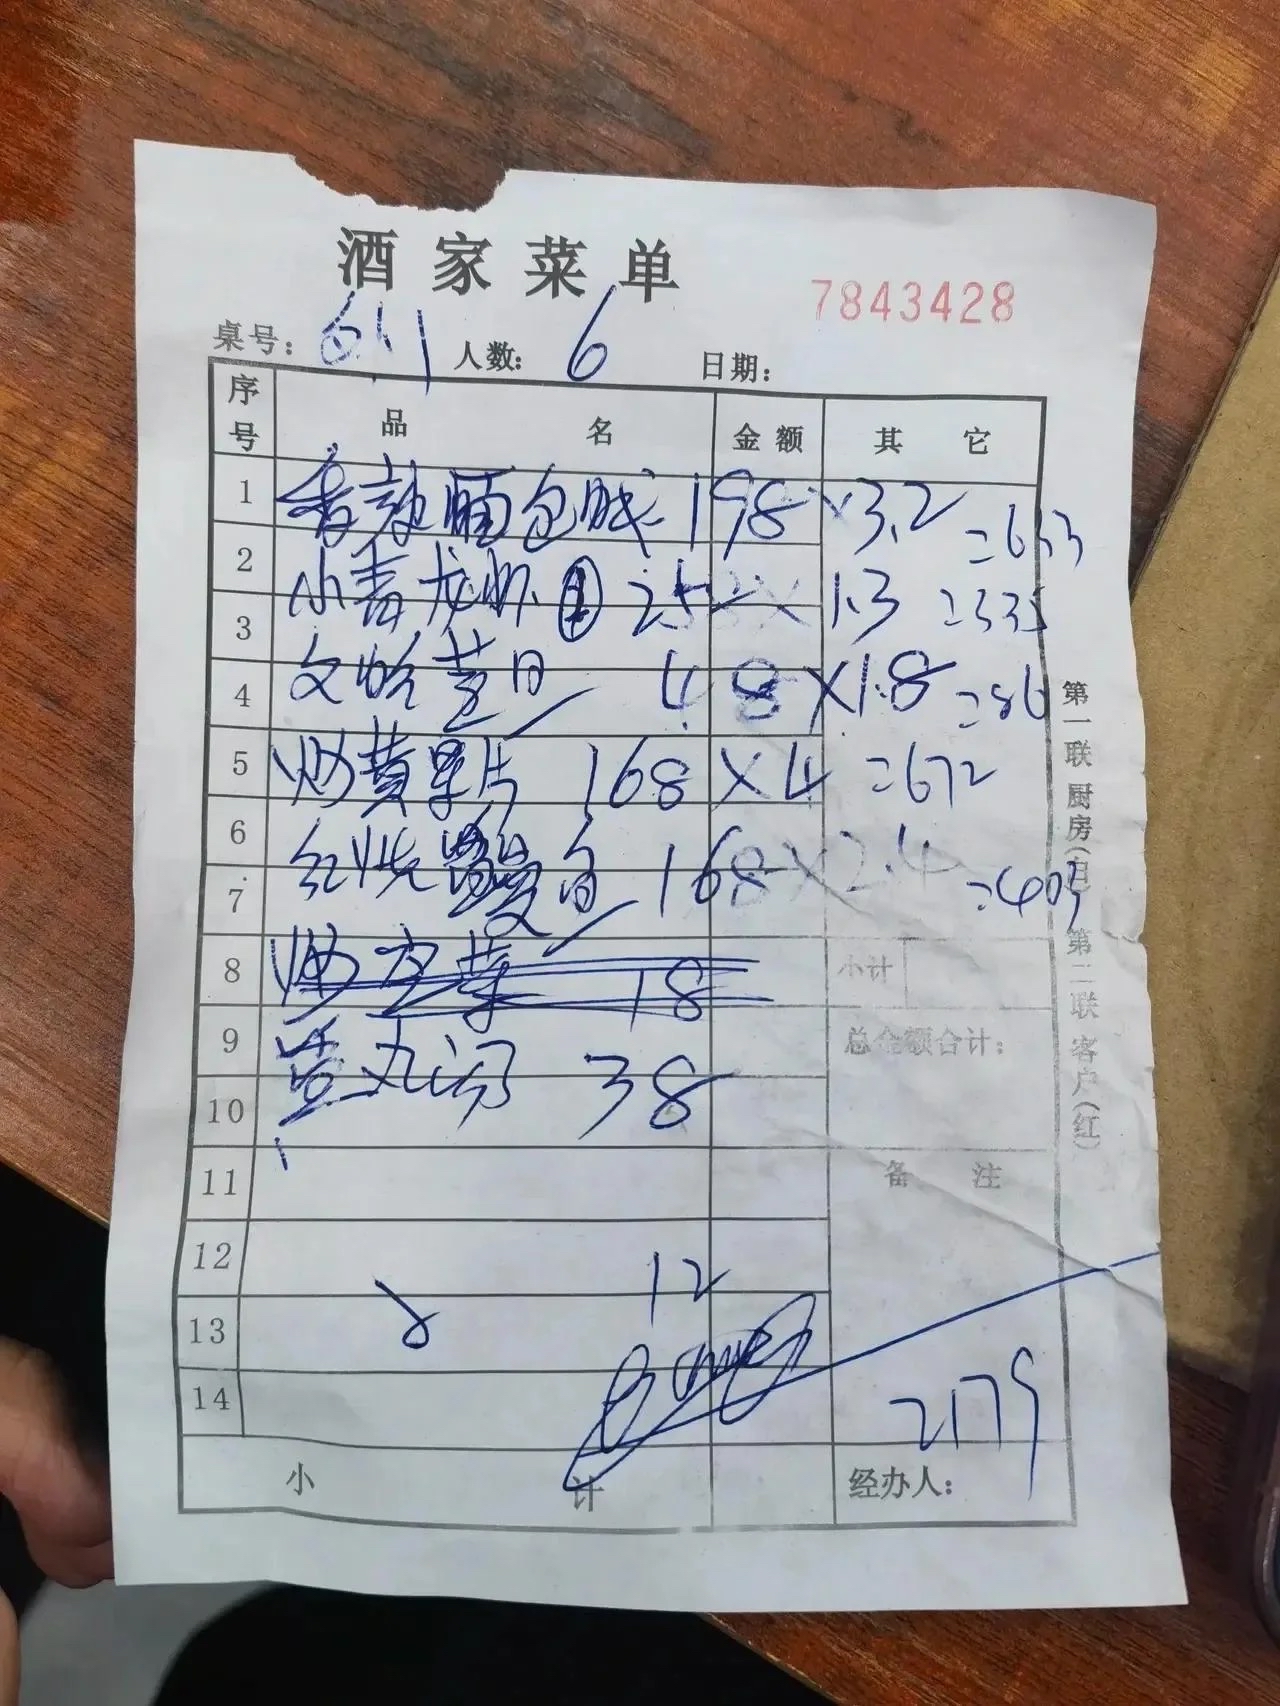 酒家菜单
7843428
桌号: 6.11 人数: 6 日期:
序号 品名 金额 其它
1 香辣面包 198 × 3.2 = 633
2 小青龙虾 252 × 1.3 = 335
3
4 文蛤 48 × 1.8 = 86
5 炒黄果片 168 × 4 = 672
6 红烧 168 × 2.4 = 403
7
8 炒空菜 18 小计
9 丸汤 38 总金额合计:
10
11 备注
12 12
13
14 2179
小计 经办人:
第一联 厨房(白) 第二联 客户(红)